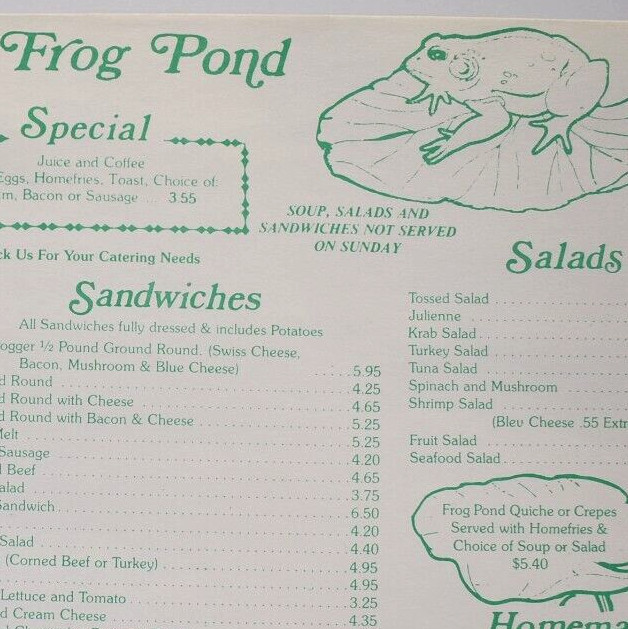 Frog Pond
Special
Juice and Coffee
Eggs, Homefries, Toast, Choice of:
Bacon or Sausage ... 3.55
SOUP, SALADS AND
SANDWICHES NOT SERVED
ON SUNDAY
Us For Your Catering Needs
Sandwiches
All Sandwiches fully dressed & includes Potatoes
1/2 Pound Ground Round. (Swiss Cheese,
Bacon, Mushroom & Blue Cheese) 5.95
Round 4.25
Round with Cheese 4.65
Round with Bacon & Cheese 5.25
5.25
Sausage 4.20
Beef 4.65
3.75
6.50
4.20
Salad 4.40
(Corned Beef or Turkey) 4.95
4.95
Lettuce and Tomato 3.25
Cream Cheese 4.35
Salads
Tossed Salad
Julienne
Krab Salad
Turkey Salad
Tuna Salad
Spinach and Mushroom
Shrimp Salad
(Bleu Cheese .55
Fruit Salad
Seafood Salad
Frog Pond Quiche or Crepes
Served with Homefries &
Choice of Soup or Salad
$5.40